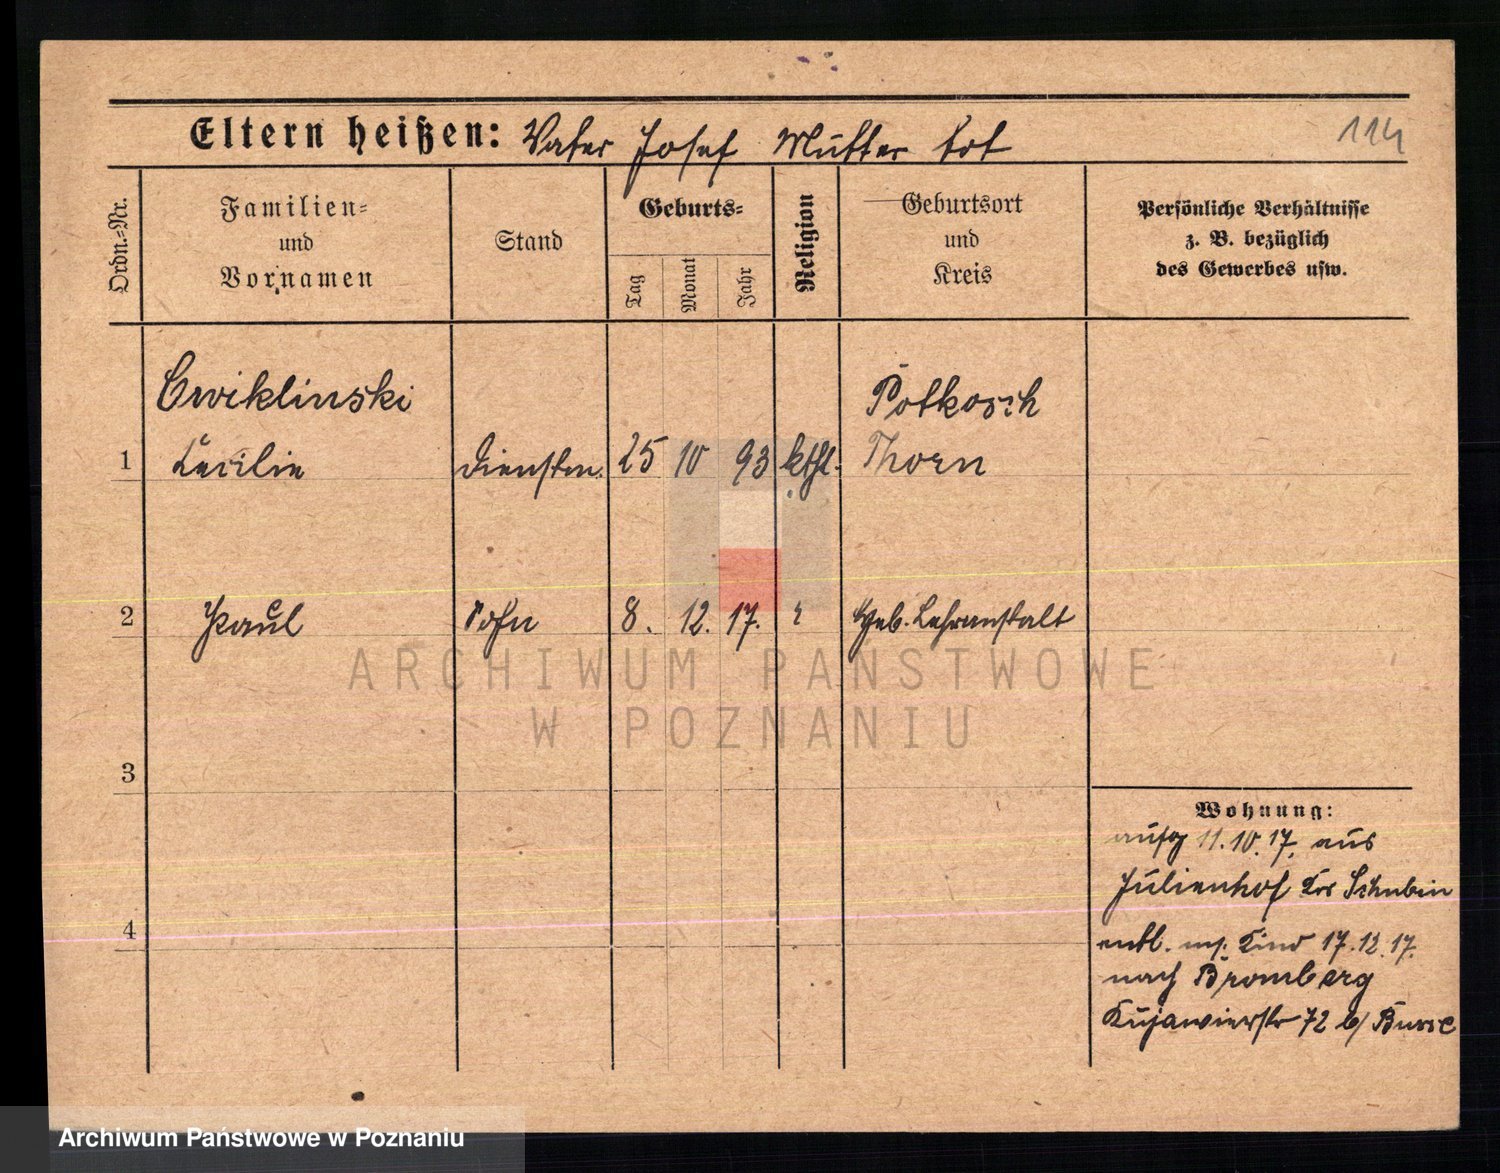 Eltern heißen: Vater Josef Mutter tot
114
Ordn.-Nr.
Familien-
und
Vornamen
Stand
Geburts-
Tag
Monat
Jahr
Religion
Geburtsort
und
Kreis
Persönliche Verhältnisse
z. B. bezüglich
des Gewerbes usw.
Cwiklinski
Potkosch
1 Cecilie Dienstm. 25 10 93 kthl. Thorn
2 Paul Sohn 8. 12. 17. Heb. Lehranstalt
ARCHIWUM PAŃSTWOWE
W POZNANIU
3
4
Wohnung:
aufg 11.10.17. aus
Julienhof Krs Schubin
entl. m/. Kind 17.12.17.
nach Bromberg
Kujawierstr 72 b/ Busse
Archiwum Państwowe w Poznaniu